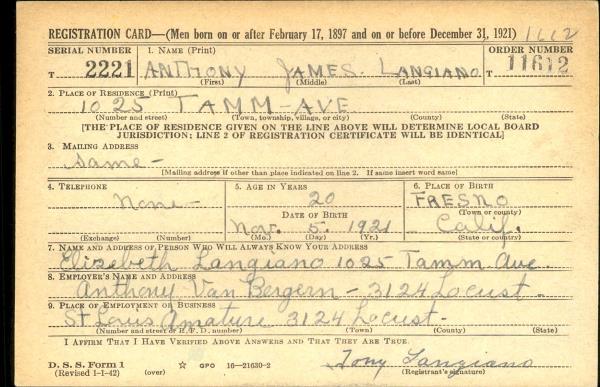 REGISTRATION CARD—(Men born on or after February 17, 1897 and on or before December 31, 1921) 1662
SERIAL NUMBER 1. NAME (Print) ORDER NUMBER
T 2221 ANTHONY JAMES LANGIANO T 11612
(First) (Middle) (Last)
2. PLACE OF RESIDENCE (Print)
1025 TAMM-AVE
(Number and street) (Town, township, village, or city) (County) (State)
[THE PLACE OF RESIDENCE GIVEN ON THE LINE ABOVE WILL DETERMINE LOCAL BOARD
JURISDICTION; LINE 2 OF REGISTRATION CERTIFICATE WILL BE IDENTICAL]
3. MAILING ADDRESS
Same-
[Mailing address if other than place indicated on line 2. If same insert word same]
4. TELEPHONE 5. AGE IN YEARS 6. PLACE OF BIRTH
None- 20 FRESNO
DATE OF BIRTH (Town or county)
Nov. 5. 1921 Calif.
(Exchange) (Number) (Mo.) (Day) (Yr.) (State or country)
7. NAME AND ADDRESS OF PERSON WHO WILL ALWAYS KNOW YOUR ADDRESS
Elizebeth Langiano 1025 Tamm Ave.
8. EMPLOYER'S NAME AND ADDRESS
Anthony Van Bergern - 3124 Locust -
9. PLACE OF EMPLOYMENT OR BUSINESS
St Louis Amature 3124 Locust-
(Number and street or R. F. D. number) (Town) (County) (State)
I AFFIRM THAT I HAVE VERIFIED ABOVE ANSWERS AND THAT THEY ARE TRUE.
D. S. S. Form 1 Tony Langiano
(Revised 1-1-42) (over) ☆ GPO 16—21630-2 (Registrant's signature)